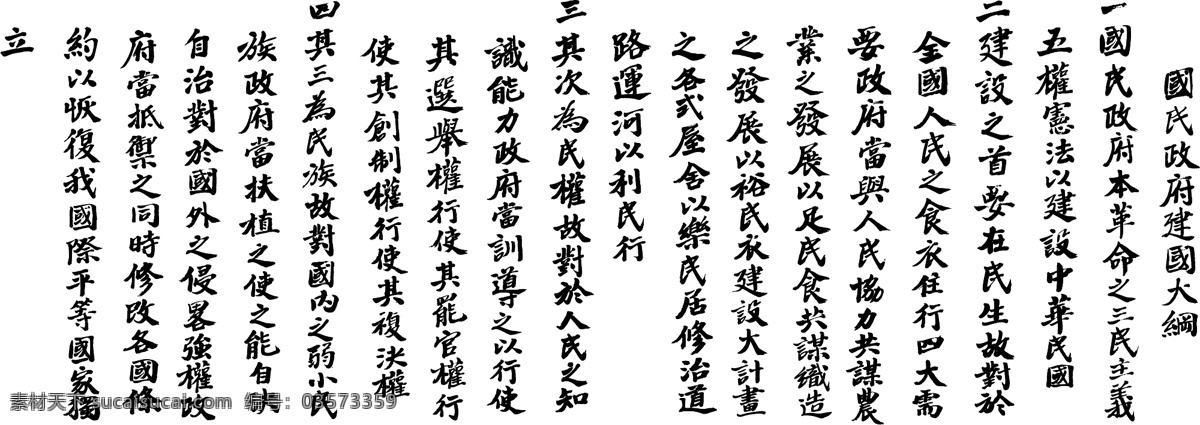 國民政府建國大綱
一國民政府本革命之三民主義
五權憲法以建設中華民國
二建設之首要在民生故對於
全國人民之食衣住行四大需
要政府當與人民協力共謀農
業之發展以足民食共謀織造
之發展以裕民衣建設大計畫
之各式屋舍以樂民居修治道
路運河以利民行
三其次為民權故對於人民之知
識能力政府當訓導之以行使
其選舉權行使其罷官權行
使其創制權行使其複決權
四其三為民族故對國內之弱小民
族政府當扶植之使之能自決
自治對於國外之侵畧強權政
府當抵禦之同時修改各國條
約以恢復我國際平等國家獨
立
素材天下 sucaisucai.com 编号: 03573359